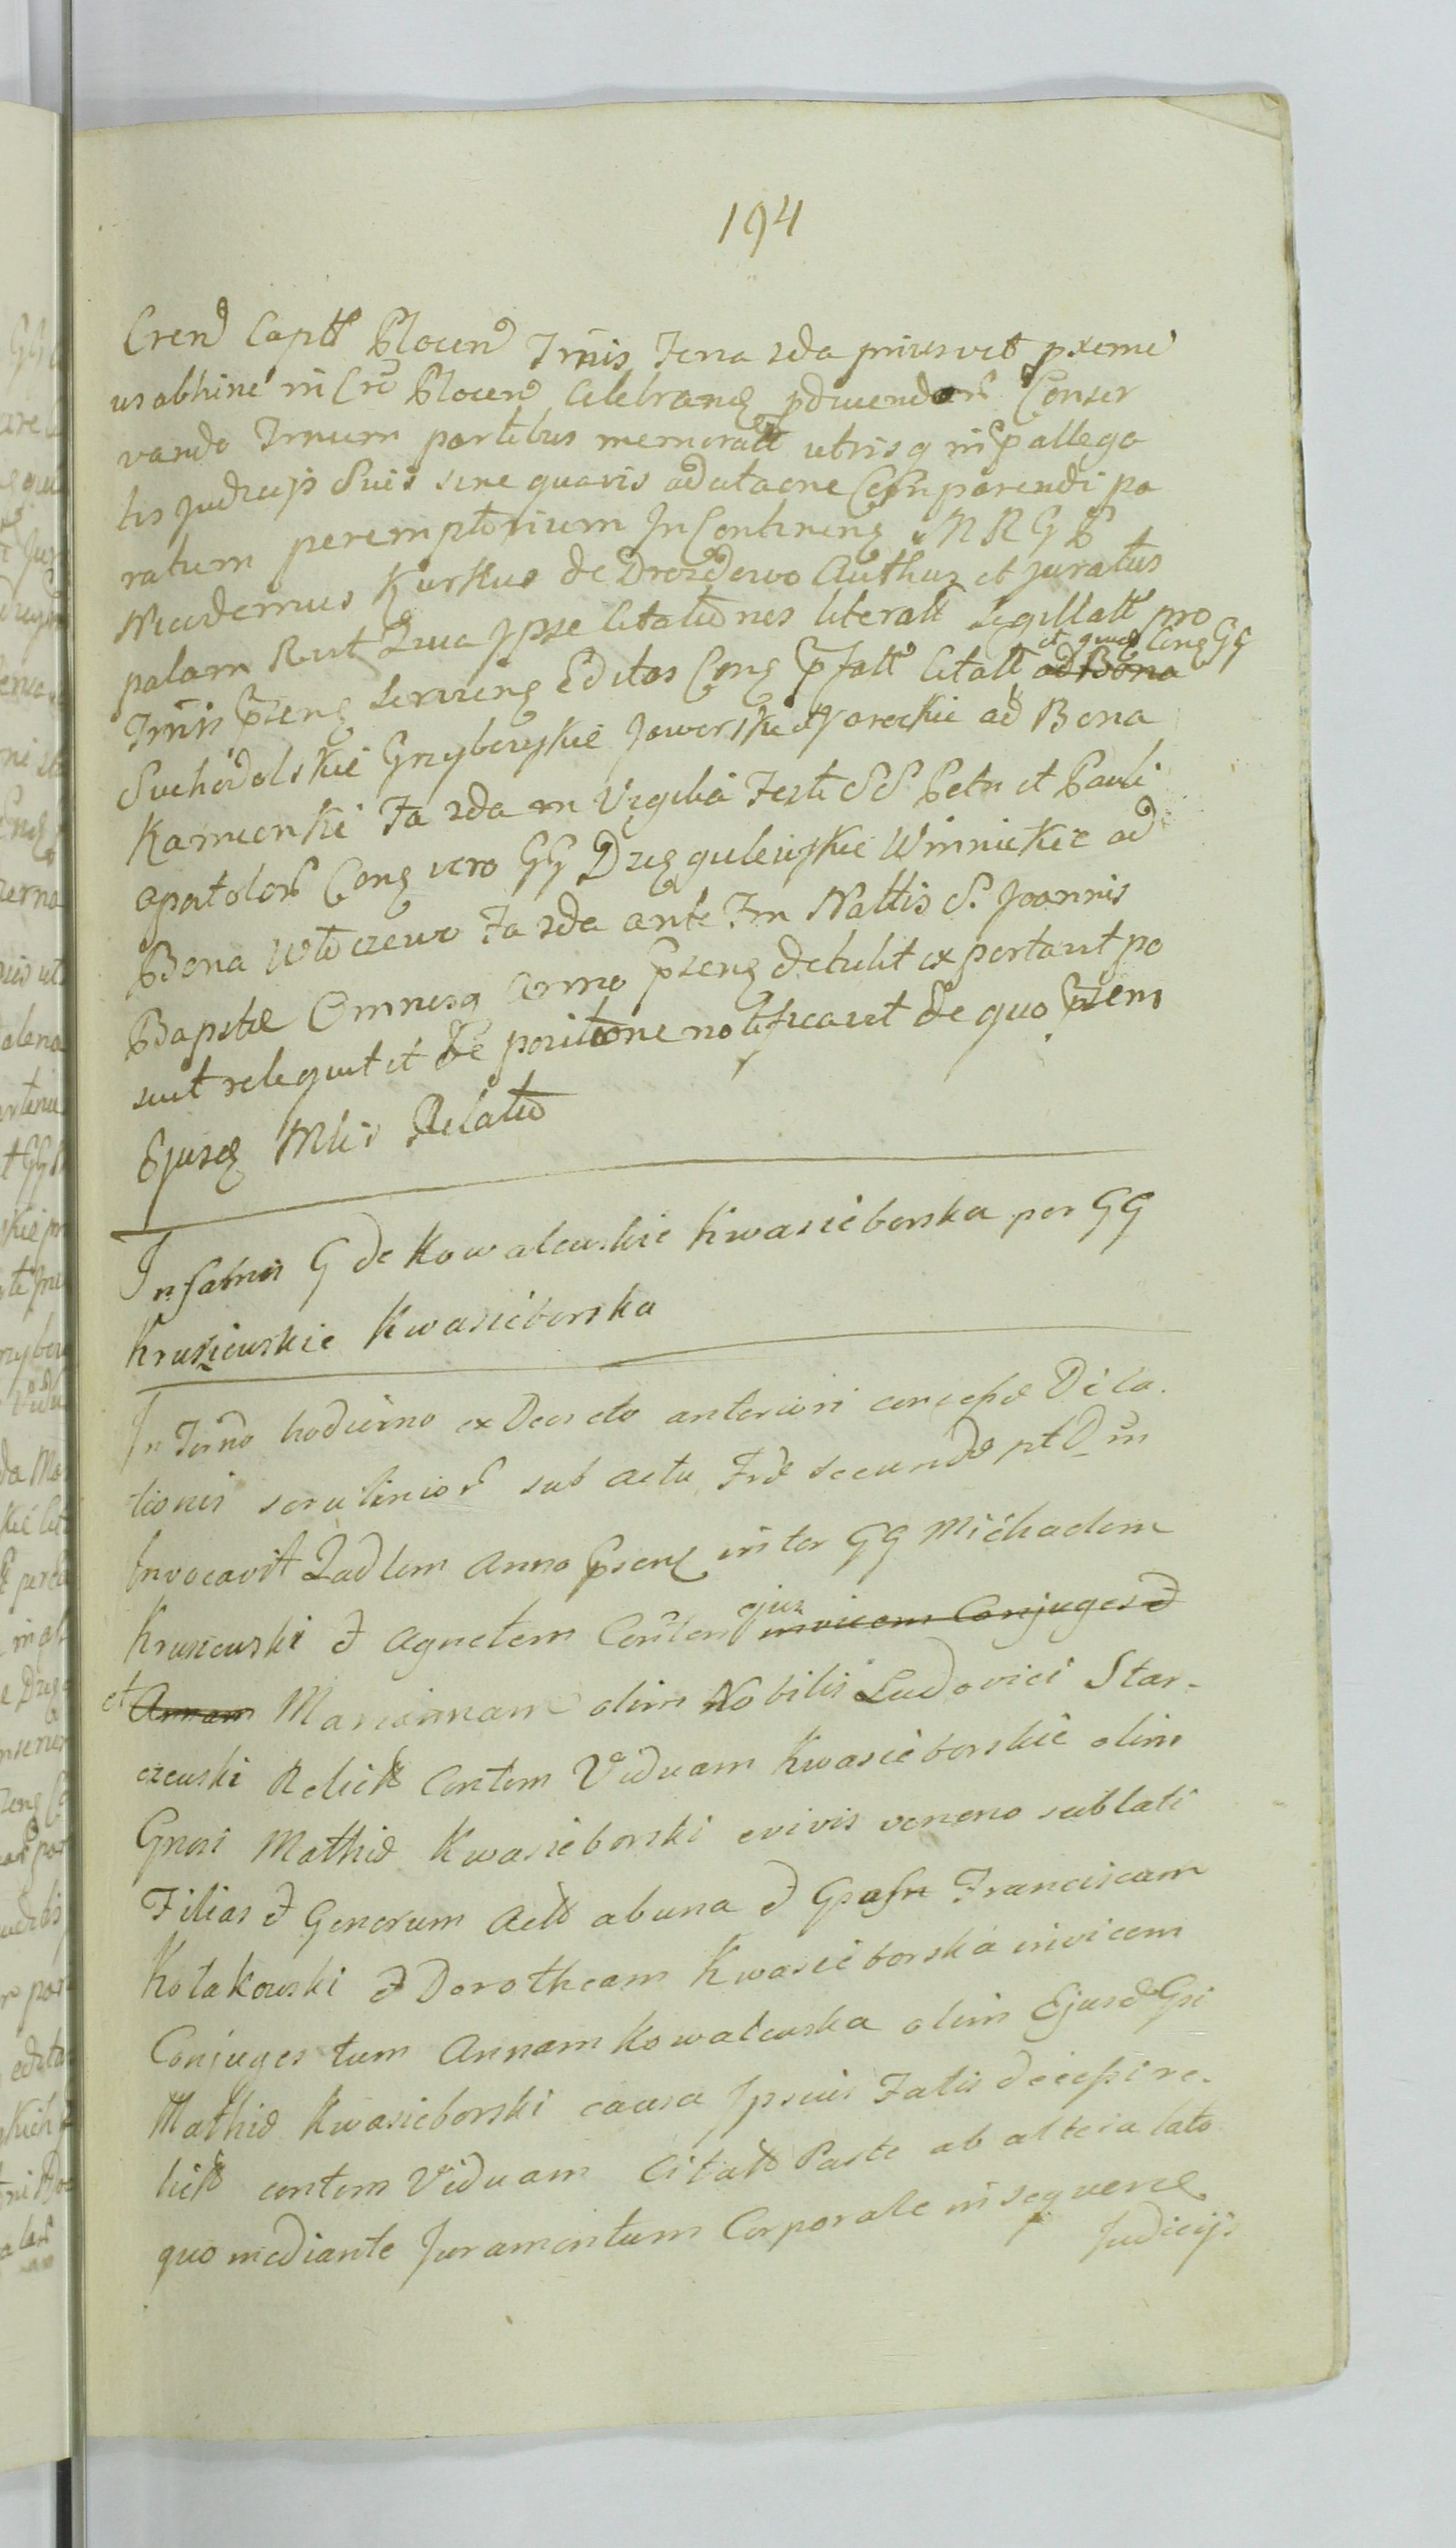 194
Crend Captt Plocen Trnis Feria 2da prius vel pxeme
us abhinc in Cre Plocen Celebrane pdmendor Conser
vando Trnum partibus memoratt utrisq in p allega
tis Judicijs Suis sine quavis adcitaone Comparendi pa
ratum peremptorium In Continens MRGP
Nicodemus Kurkus de Drozdowo Authus et juratus
palam Rut Quia Ipse Citationes literatt Sigillatt pro
Trnis psens Serviens Editas Cong pfatt Citatt ad Bona et quid Cong GG
Suchodolskie Grzybowskie Jaworskie et Zareckie ad Bona
Kamienki Fa 2da in Vigilia Festi SS Petri et Pauli
apostolor Cong vero GG Drzegulewskie Winnickie ad
Bona Wloczewo Fa 2da ante Fm Nattis S. Joannis
Baptistæ Omnesq Anno psens detulit exportavit po
suit reliquit et De positione notificavit de quo psens
Ejusd Mlis Relatio
Infamis G de Kowalewskie Kwasieborska per GG
Krusiewskie Kwasieborska
In Terno hodierno ex Decreto anteriori concessæ Dila-
tionis scrutinior sub actu Fræ secundæ pt D in
Invocavit Qadlem Anno psens inter GG Michaelem
Krusiewski & Agnetem Conten ejus invicem Conjuges &
et Annam Mariannam olim Nobilis Ludovici Star-
czewski Relictt Contem Viduam Kwasieborskie olim
Gnosi Mathiæ Kwasieborski e vivis veneno sublati
Filias & Generum Actt ab una & Gsasm Franciscam
Kolakowski & Dorotheam Kwasieborska invicem
Conjuges tum Annam Kowalewska olim Ejusd Gsi
Mathiæ Kwasieborski causa Ipsius Fatis decessi re-
lictt contem Viduam Citatt Parte ab altera lato
quo mediante Juramentum Corporale insequend
Judicijs